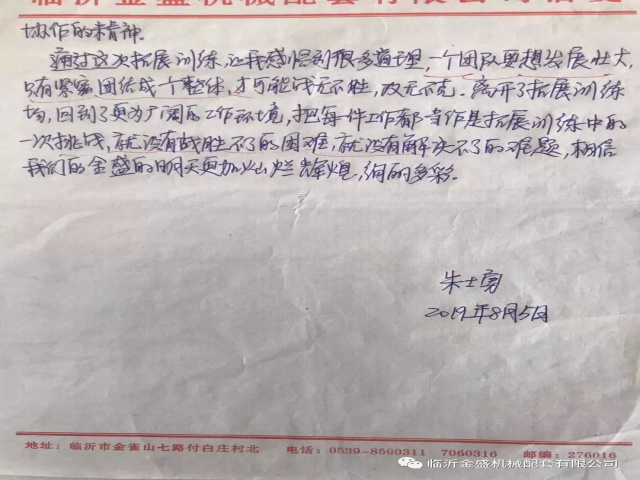 临沂金盛机械配套有限公司信笺
协作的精神。
通过这次拓展训练,让我感悟到很多道理,一个团队要想发展壮大,
只有紧密团结成一个整体,才可能战无不胜,攻无不克。离开了拓展训练
场,回到了更为广阔的工作环境,把每件工作都当作是拓展训练中的
一次挑战,就没有战胜不了的困难,就没有解决不了的难题,相信
我们的金盛的明天更加灿烂辉煌,绚丽多彩。
朱士勇
2019年8月5日
地址:临沂市金雀山七路付白庄村北 电话:0539-8590311 7060316 邮编:276016
临沂金盛机械配套有限公司